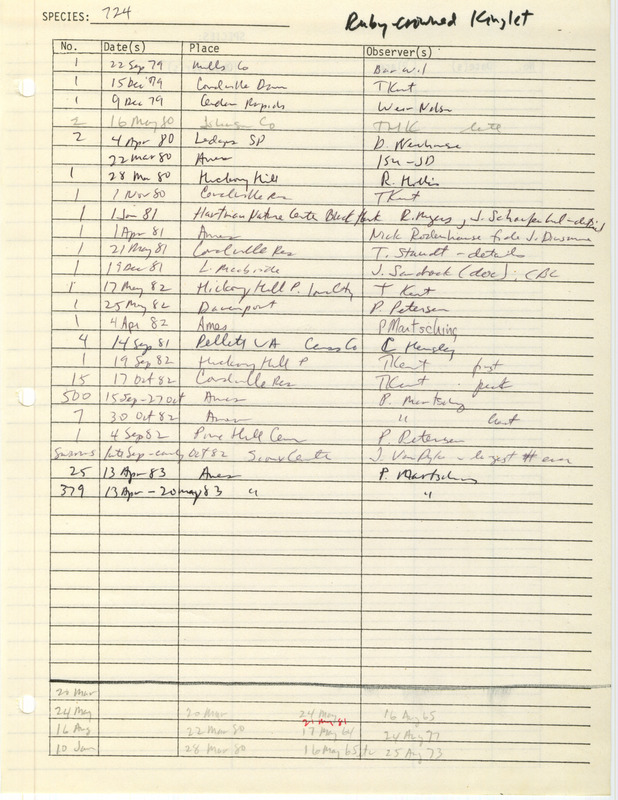 SPECIES: 724 Ruby-crowned Kinglet
No. Date(s) Place Observer(s)
1 22 Sep 79 Mills Co
1 15 Dec 79 Coralville Dam TKent
1 9 Dec 79 Cedar Rapids Weir-Nolson
2 16 May 80 Johnson Co THK late
2 4 Apr 80 Ledges SP D. Newhouse
22 Mar 80 Ames ISU-JD
1 28 Mar 80 Hickory Hill R. Hollis
1 1 Nov 80 Coralville Res TKent
1 1 Jan 81 Hartman Nature Center Black Hawk R. Myers, J. Schaufenbuel-detail
1 1 Apr 81 Ames Nick Rodenhouse fide J. Dinsmore
1 21 May 81 Coralville Res T. Staudt - details
1 19 Dec 81 L. Macbride J. Sandrock (doc); CBC
1 17 May 82 Hickory Hill P. Iowa City T Kent
1 25 May 82 Davenport P. Petersen
1 4 Apr 82 Ames P Martsching
4 14 Sep 81 Pellett WA Cass Co Hensley
1 19 Sep 82 Hickory Hill P TKent first
15 17 Oct 82 Coralville Res TKent peak
500 15 Sep-27 Oct Ames P. Martsching
7 30 Oct 82 Ames " last
1 4 Sep 82 Pine Hill Cem P. Petersen
late Sep-early Oct 82 Sioux Center J. Van Dyk - largest # ever
25 13 Apr 83 Ames P. Martsching
379 13 Apr - 20 May 83 " "
20 Mar
24 May 20 Mar 24 May 16 Aug 65
21 May 81
16 Aug 22 Mar 80 17 May 64 24 Aug 77
10 Jan 28 Mar 80 16 May 65, 25 Aug 73